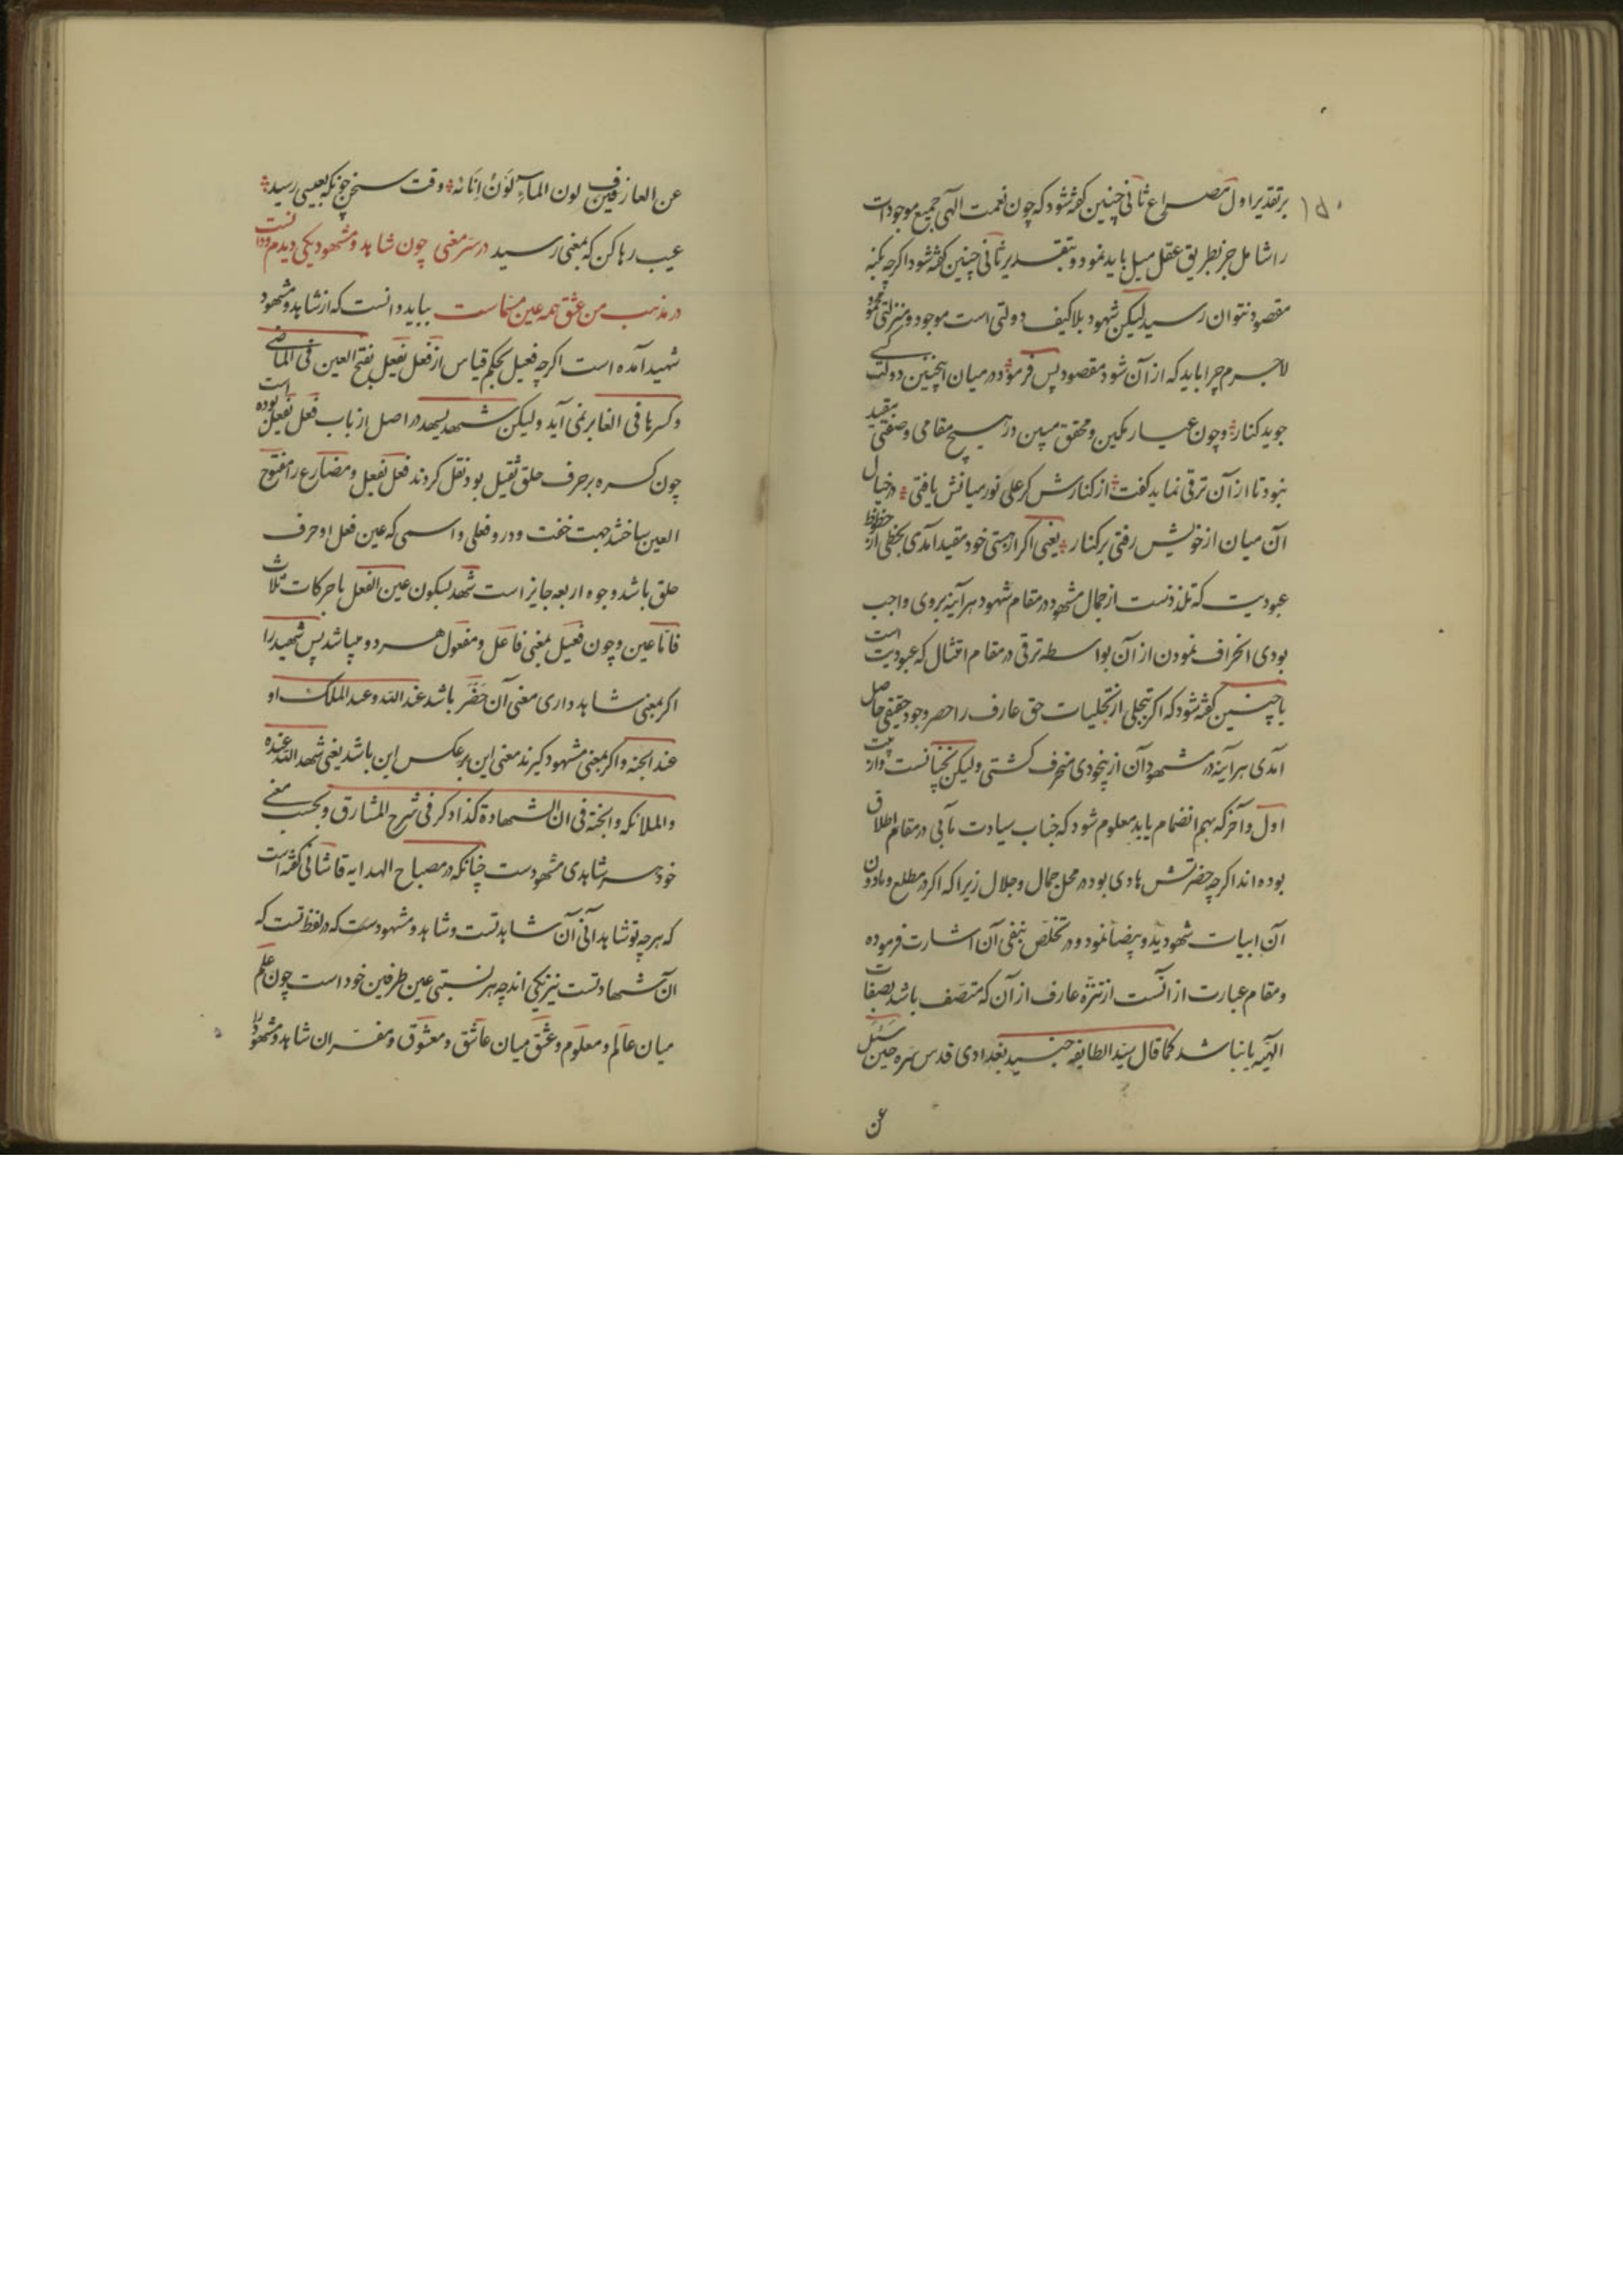 ۱۵۰
بر تقدیر اول مصراع ثانی چنین گفته شود که چون نعمت الهی جمیع موجودات
را شامل جز بطریق عقل میل باید نمود و بتقدیر ثانی چنین گفته شود اگرچه بکنه
مقصود نتوان رسید لیکن شهود بلا کیف دولتی است موجود و منزلتی محمود
لاجرم چرا باید که از آن شود مقصود پس فرمود در میان اینچنین دولت کسی
جوید کنار وچون عیار مکین و محقق مبین در هیچ مقامی و صفتی مقید
نبود تا از آن ترقی نماید گفت از کنارش کر علی نور میانش یافتی در خیال
آن میان از خویش رفتی بر کنار یعنی اگر از هستی خود مقید آمدی بحظی از حظوظ
عبودیت که تلذذست از جمال مشهود در مقام شهود هر آینه بروی واجب
بودی انحراف نمودن از آن بواسطه ترقی در مقام امتثال که عبودیت است
یا چنین گفته شود که اگر تجلی از تجلیات حق عارف را حصر وجود حقیقی حاصل
آمدی هر آینه در شهود آن از بیخودی منحرف گشتی ولیکن نچنانست واز بیت
اول و آخر که بهم انضمام یابد معلوم شود که جناب سیادت مآبی در مقام اطلاق
بوده اند اگرچه حضرتش هادی بود در محل جمال و جلال زیرا که اگر در مطلع و مادون
آن ابیات شهود ید و بیضا نمود و در تخلص بنفی آن اشارت فرموده
و مقام عبارت از آنست از تنزه عارف از آن که متصف باشد بصفات
الهیه یا نباشد کما قال سید الطایفه جنید بغدادی قدس سره حین سئل
عن
عن العارفین لون الماء لَوْنُ اِنَائه وقت سخن چونکه بعیسی رسید
عیب رها کن که بمعنی رسید در سر معنی چون شاهد و مشهود یکی دیدم و دانست
در مذهب من عشق همه عین مسماست بباید دانست که از شاهد و مشهود
شهید آمده است اگرچه فعیل بحکم قیاس از فعل یفعل بفتح العین فی الماضی
و کسرها فی الغابر نمی آید ولیکن شهد یشهد در اصل از باب فعل یفعل بوده است
چون کسره بر حرف حلق ثقیل بود نقل کردند فعل یفعل و مضارع را مفتوح
العین ساختند جهت خفت و در و فعلی و اسمی که عین فعل او حرف
حلق باشد وجوه اربعه جایز است شهد بسکون عین الفعل با حرکات ثلاث
فا تا عین و چون فعیل بمعنی فاعل و مفعول هر دو میباشد پس شهید را
اگر بمعنی شاهد داری معنی آن حَضَرَ باشد عند الله و عند الملک او
عند الجنه و اگر بمعنی مشهود گیرند معنی این بر عکس این باشد یعنی شهد الله عنده
والملائکه والجنة فی ان الشهادة کذا ذکر فی شرح المشارق و بحسب معنی
خود هر شاهدی مشهودست چنانکه در مصباح الهدایه قاشانی گفته است
که هرچه تو شاهد آنی آن شاهد تست و شاهد و مشهودست که در لفظ تست که
آن شهادتست نیز یکی اند چه هر نسبتی عین طرفین خود است چون علم
میان عالم و معلوم و عشق میان عاشق و معشوق و مفسران شاهد و مشهود را